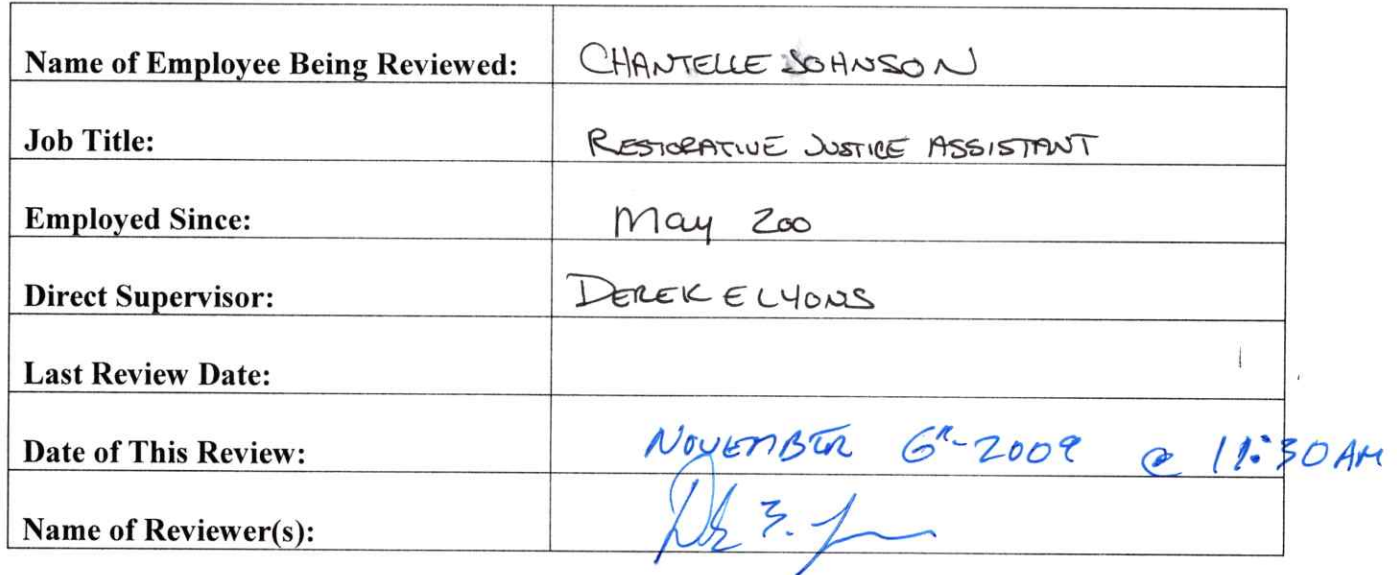 Name of Employee Being Reviewed: CHANTELLE JOHNSON
Job Title: RESTORATIVE JUSTICE ASSISTANT
Employed Since: May 200
Direct Supervisor: DEREK E LYONS
Last Review Date:
Date of This Review: NOVEMBER 6th-2009 @ 11:30AM
Name of Reviewer(s):